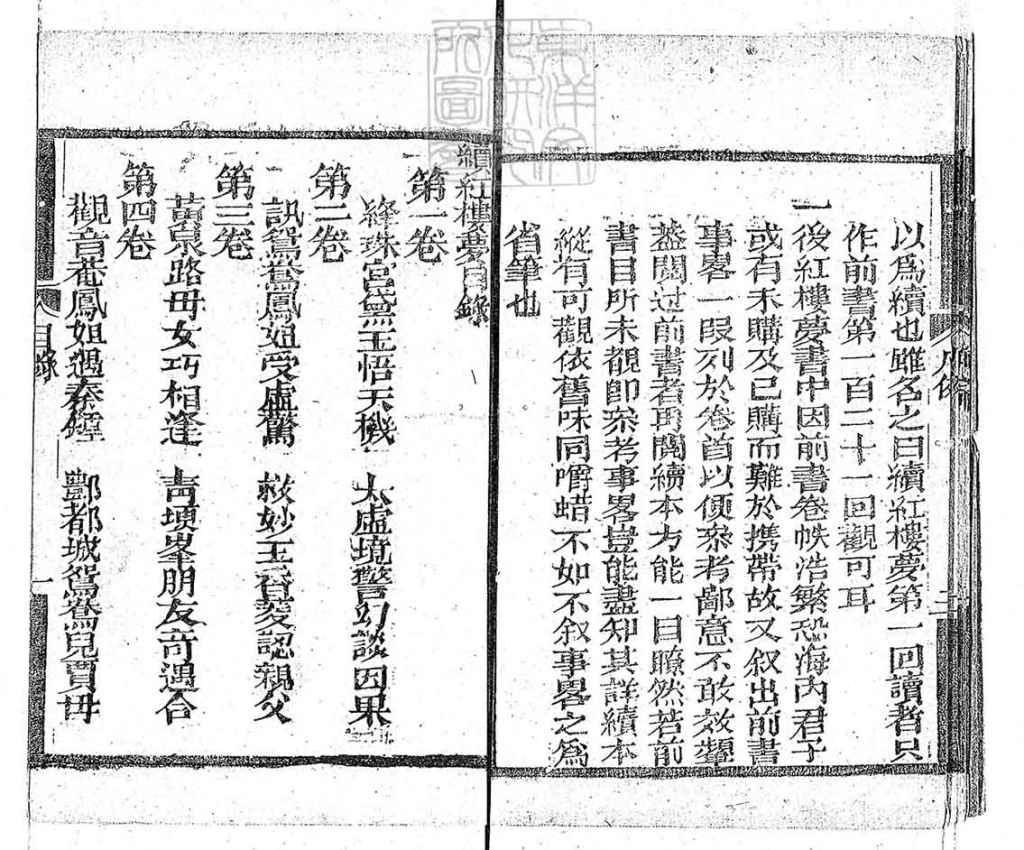 以為續也雖名之曰續紅樓夢第一回讀者只
作前書第一百二十一回觀可耳
一後紅樓夢書中因前書卷帙浩繁恐海內君子
或有未購及已購而難於携帶故又叙出前書
事畧一段列於卷首以便叅考鄙意不敢效顰
葢閱过前書者再閱續本方能一目瞭然若前
書目所未覩即叅考事畧豈能盡知其詳續本
縱有可觀依舊味同嚼蜡不如不叙事畧之為
省筆也
凡例
二
續紅樓夢目錄
第一卷
絳珠宮黛玉悟天機 太虛境警幻談因果
第二卷
訊鴛鴦鳳姐受虛驚 救妙玉香菱認親父
第三卷
黃泉路母女巧相逢 青埂峯朋友奇遇合
第四卷
觀音菴鳳姐遇秦鍾 酆都城鴛鴦見賈母
目錄
一